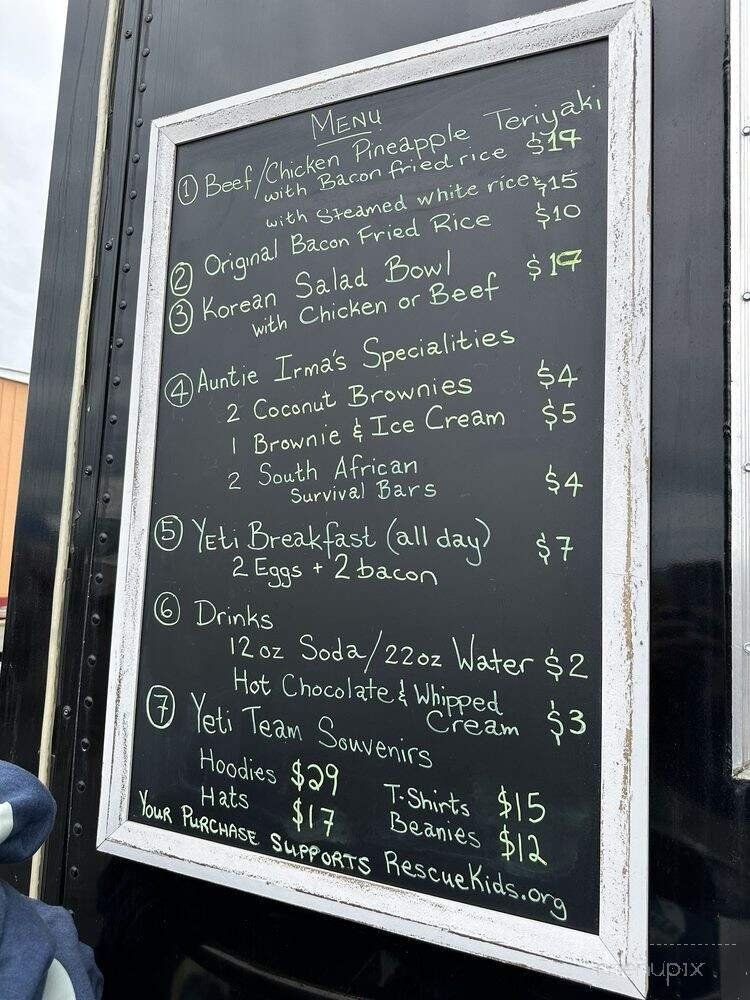 MENU
① Beef/Chicken Pineapple Teriyaki
with Bacon fried rice $19
with Steamed white rice $15
② Original Bacon Fried Rice $10
③ Korean Salad Bowl $19
with Chicken or Beef
④ Auntie Irma's Specialities
2 Coconut Brownies $4
1 Brownie & Ice Cream $5
2 South African $4
Survival Bars
⑤ Yeti Breakfast (all day) $7
2 Eggs + 2 bacon
⑥ Drinks
12 oz Soda/22oz Water $2
Hot Chocolate & Whipped
Cream $3
⑦ Yeti Team Souvenirs
Hoodies $29 T-Shirts $15
Hats $17 Beanies $12
YOUR PURCHASE SUPPORTS RescueKids.org
menupix